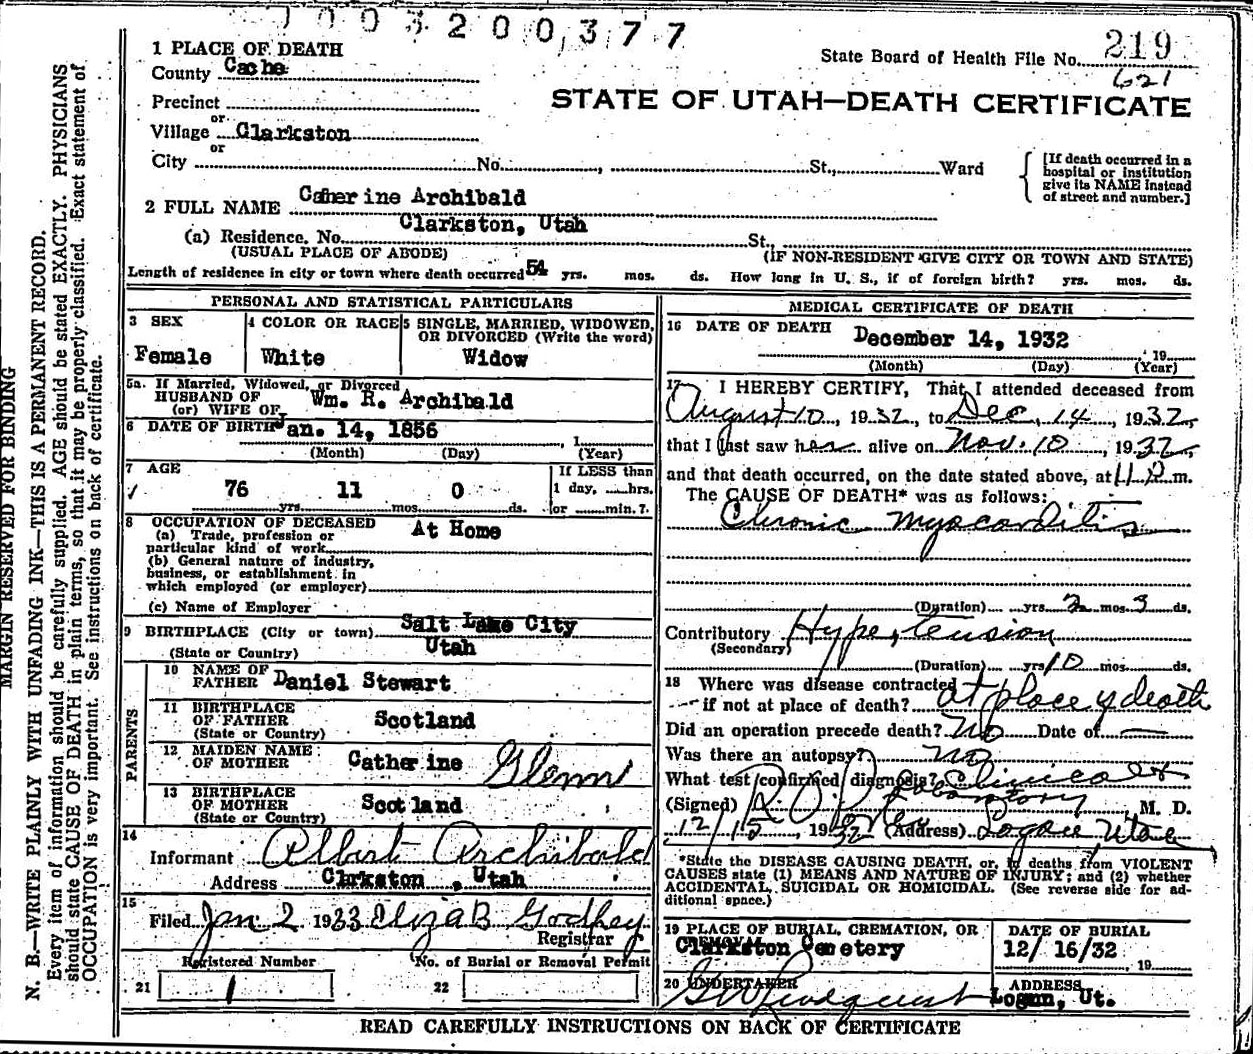 1003200377
1 PLACE OF DEATH
County Cache
State Board of Health File No. 219
621
Precinct
or
Village Clarkston
or
STATE OF UTAH—DEATH CERTIFICATE
City No. , St., Ward
[If death occurred in a
hospital or institution
give its NAME instead
of street and number.]
2 FULL NAME Catherine Archibald
Clarkston, Utah
(a) Residence. No. St.,
(USUAL PLACE OF ABODE) (IF NON-RESIDENT GIVE CITY OR TOWN AND STATE)
Length of residence in city or town where death occurred 54 yrs. mos. ds. How long in U. S., if of foreign birth? yrs. mos. ds.
PERSONAL AND STATISTICAL PARTICULARS
3 SEX
Female
4 COLOR OR RACE
White
5 SINGLE, MARRIED, WIDOWED,
OR DIVORCED (Write the word)
Widow
5a. If Married, Widowed, or Divorced
HUSBAND OF
(or) WIFE OF Wm. R. Archibald
6 DATE OF BIRTH Jan. 14, 1856 , 1
(Month) (Day) (Year)
7 AGE
76 yrs. 11 mos. 0 ds.
If LESS than
1 day, hrs.
or min.?
8 OCCUPATION OF DECEASED At Home
(a) Trade, profession or
particular kind of work
(b) General nature of industry,
business, or establishment in
which employed (or employer)
(c) Name of Employer
9 BIRTHPLACE (City or town) Salt Lake City
(State or Country) Utah
PARENTS
10 NAME OF
FATHER Daniel Stewart
11 BIRTHPLACE
OF FATHER Scotland
(State or Country)
12 MAIDEN NAME
OF MOTHER Catherine Glenn
13 BIRTHPLACE
OF MOTHER Scotland
(State or Country)
14
Informant Albert Archibald
Address Clrkston , Utah
15
Filed Jan 2 1933 Eliza B Godfrey
Registrar
Registered Number No. of Burial or Removal Permit
21 1 22
MEDICAL CERTIFICATE OF DEATH
16 DATE OF DEATH December 14, 1932
, 19
(Month) (Day) (Year)
17 I HEREBY CERTIFY, That I attended deceased from
August 10, 1932, to Dec. 14, 1932,
that I last saw her alive on Nov. 10, 1932,
and that death occurred, on the date stated above, at m.
The CAUSE OF DEATH* was as follows:
Chronic myocarditis
(Duration) yrs. 2 mos. 3 ds.
Contributory Hypertension
(Secondary)
(Duration) yrs. 10 mos. ds.
18 Where was disease contracted
if not at place of death? at place of death
Did an operation precede death? No Date of —
Was there an autopsy? no
What test confirmed diagnosis? Clinical &
Laboratory
(Signed) , M. D.
12/15, 1932 (Address) Logan Utah
*State the DISEASE CAUSING DEATH, or, in deaths from VIOLENT
CAUSES state (1) MEANS AND NATURE OF INJURY; and (2) whether
ACCIDENTAL, SUICIDAL OR HOMICIDAL. (See reverse side for ad-
ditional space.)
19 PLACE OF BURIAL, CREMATION, OR
REMOVAL
Clarkston Cemetery
DATE OF BURIAL
12/ 16/32
, 19
20 UNDERTAKER
G W Lindquist
ADDRESS
Logan, Ut.
READ CAREFULLY INSTRUCTIONS ON BACK OF CERTIFICATE
MARGIN RESERVED FOR BINDING
N. B.—WRITE PLAINLY WITH UNFADING INK—THIS IS A PERMANENT RECORD.
Every item of information should be carefully supplied. AGE should be stated EXACTLY. PHYSICIANS
should state CAUSE OF DEATH in plain terms, so that it may be properly classified. Exact statement of
OCCUPATION is very important. See instructions on back of certificate.